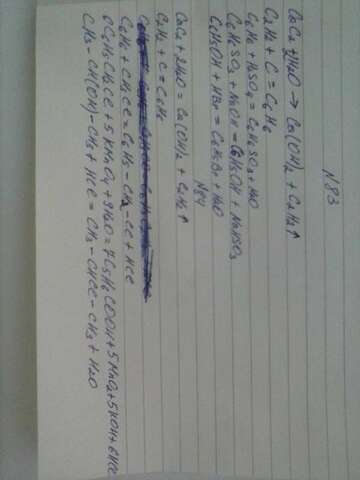 N83
CaC2 + 2H2O → Ca(OH)2 + C2H2↑
C2H2 + C = C6H6
C6H6 + H2SO4 = C6H6SO3 + H2O
C6H6SO3 + NaOH = C6H5OH + NaHSO3
C6H5OH + HBr = C6H5Br + H2O
N84
CaC2 + 2H2O = Ca(OH)2 + C2H2↑
C2H2 + C = C6H6
C6H6 + CH3Cl = C6H5 - CH2 - Cl + HCl
C6H5CH2Cl + 5KMnO4 + 9H2O = 7C6H5COOH + 5MnO2 + 5KOH + 6HCl
CH3 - CH(OH) - CH3 + HCl = CH3 - CHCl - CH3 + H2O